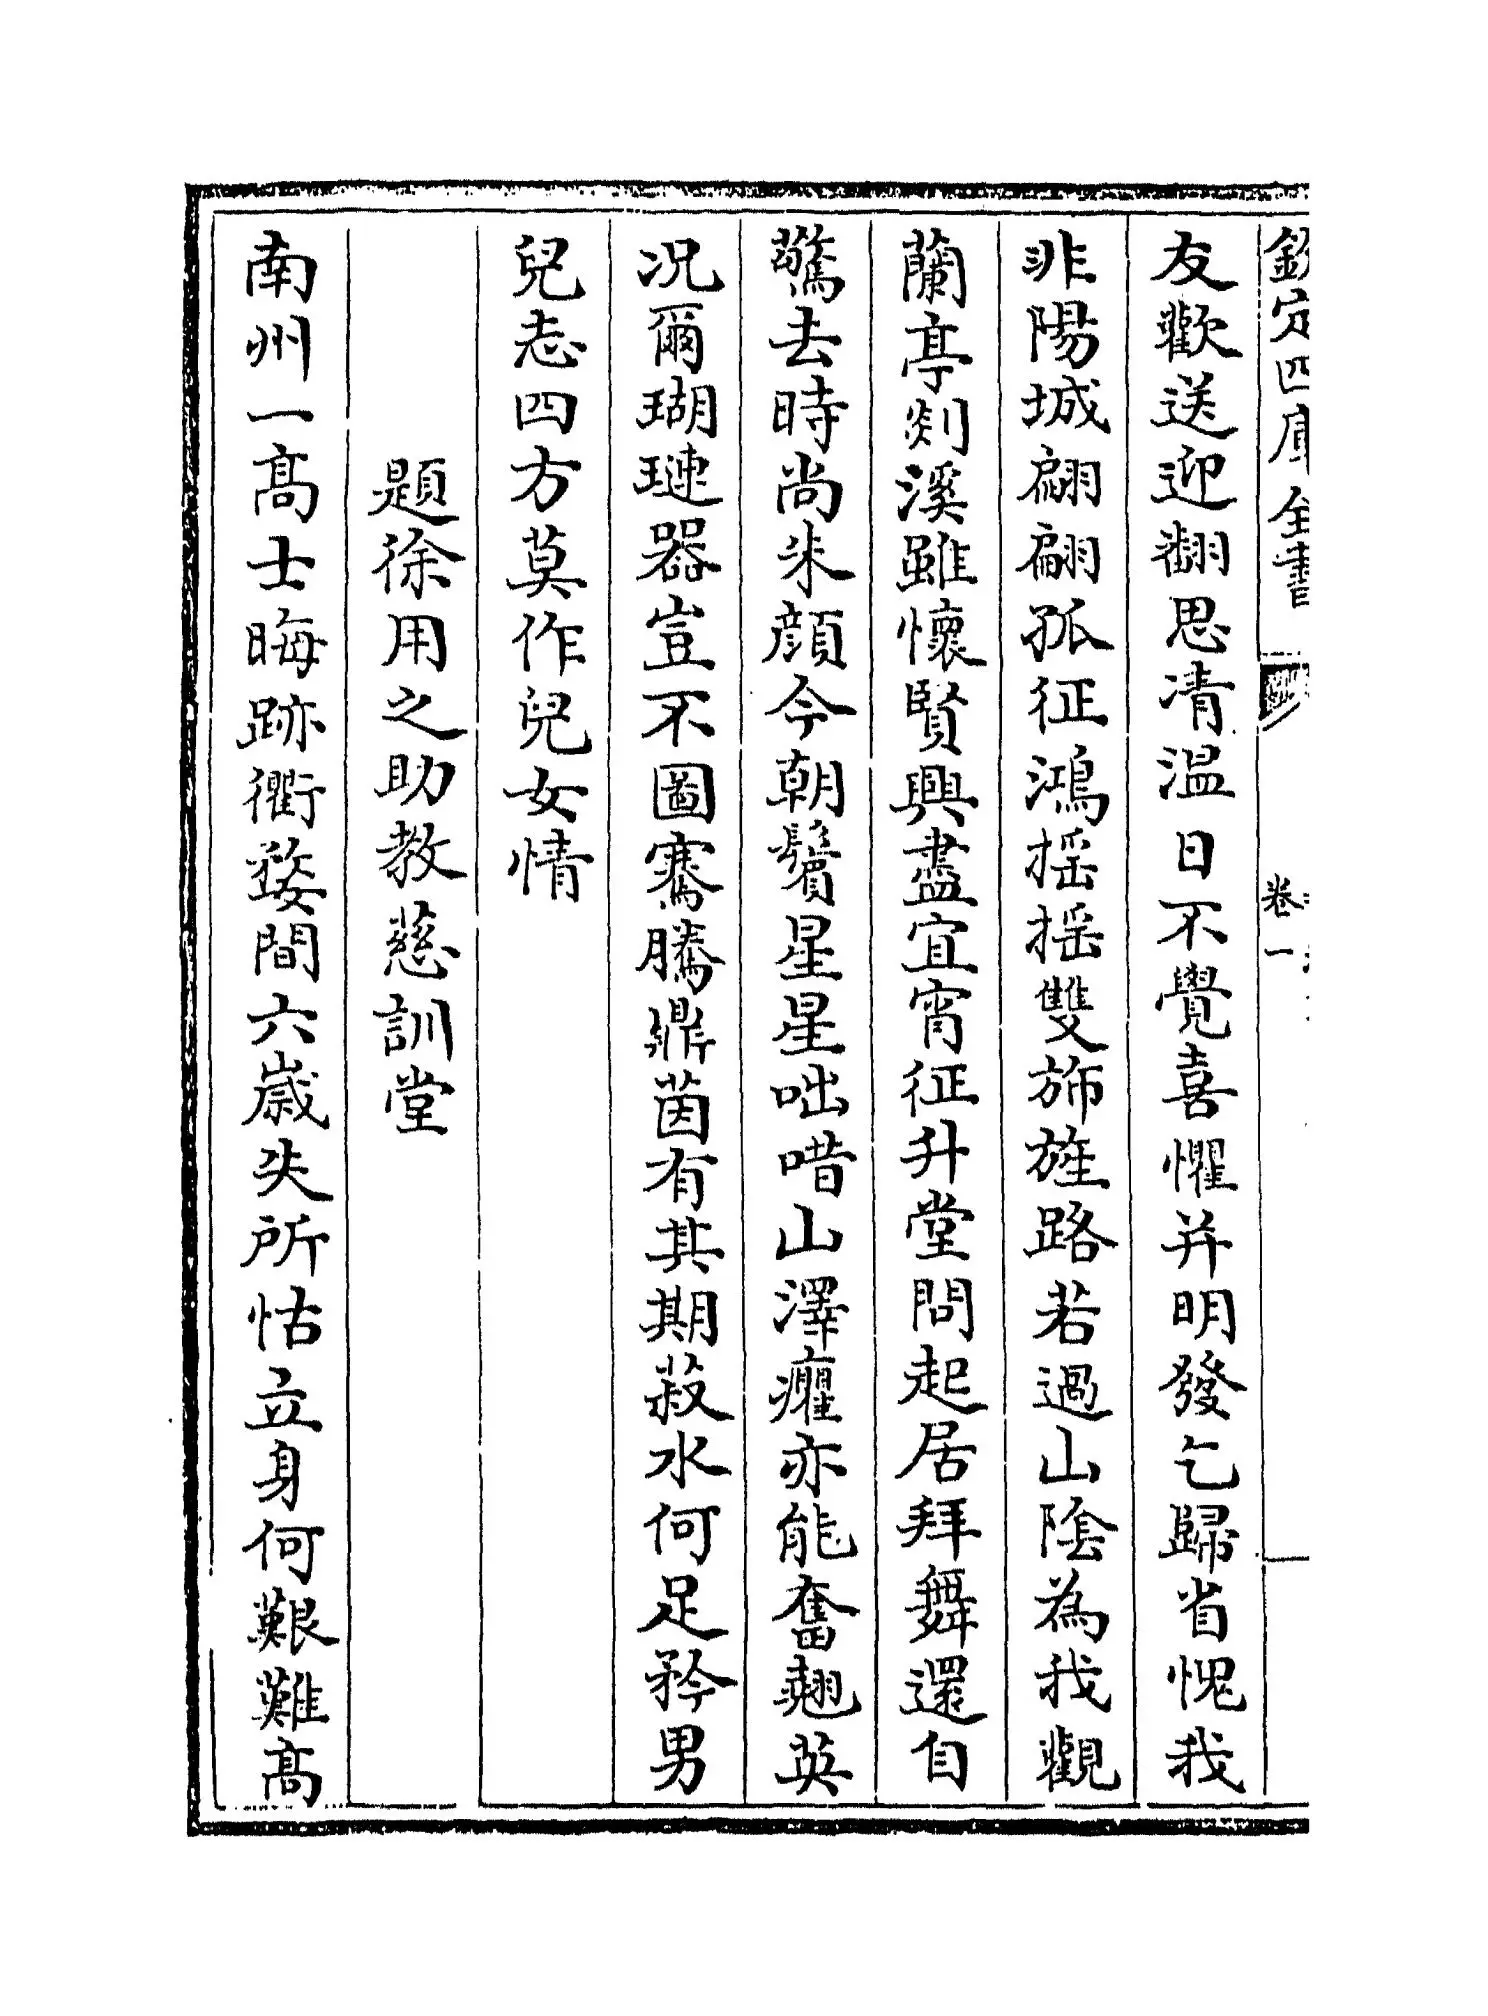 欽定四庫全書
卷一
友歡送迎翻思凊温日不覺喜懼并明發乞歸省愧我
非陽城翩翩孤征鴻揺揺雙斾旌路若過山隂為我觀
蘭亭剡溪雖懷賢興盡宜宵征升堂問起居拜舞還自
驚去時尚朱顔今朝鬢星星咄唶山澤癯亦能奮翹英
况爾瑚璉器豈不圖騫騰鼎茵有其期菽水何足矜男
兒志四方莫作兒女情
題徐用之助教慈訓堂
南州一髙士晦跡衢婺間六歳失所怙立身何艱難髙